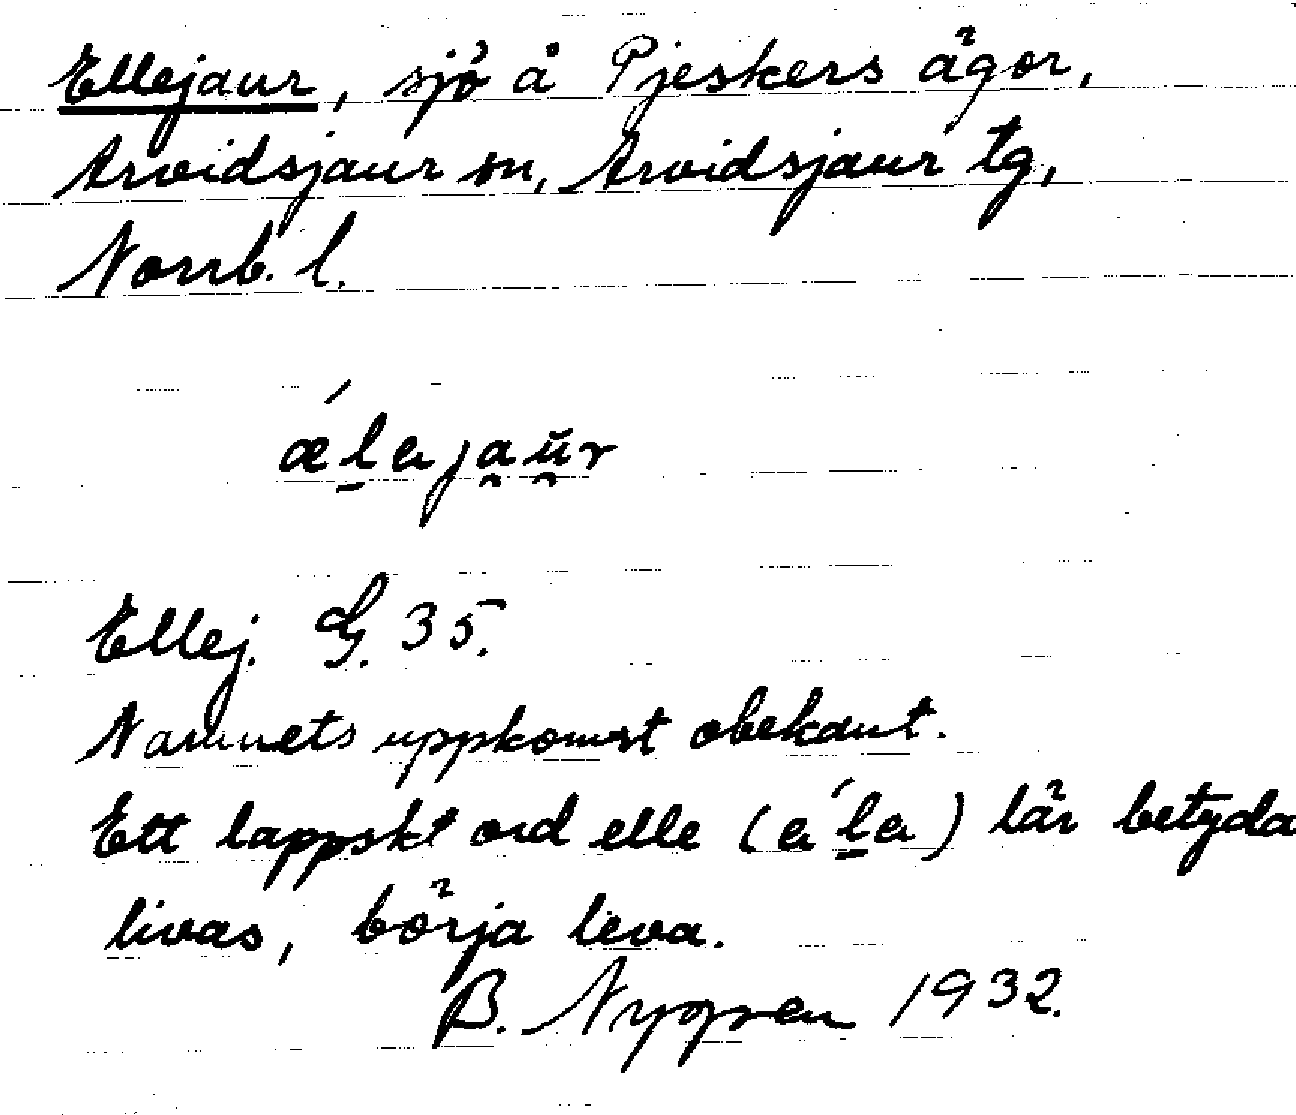 Ellejaur, sjö å Pjeskers ägor,
Arvidsjaur sn, Arvidsjaur tg,
Norrb. l.
Ellej. G. 35.
Namnets uppkomst obekant.
Ett lappskt ord elle () lär betyda
livas, börja leva.
B. Nygren 1932.